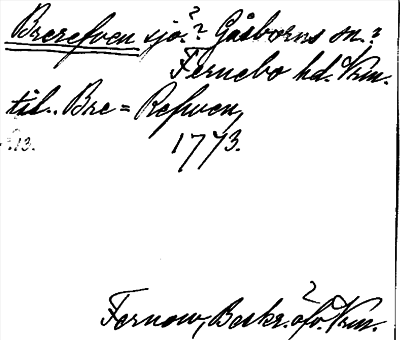 Brerefven sjö? Gåsborns sn.?
Fernebo hd. Vrm.
til.. Bre = Refwen,
1773.
Fernow, Beskr. öfv. Vrm.